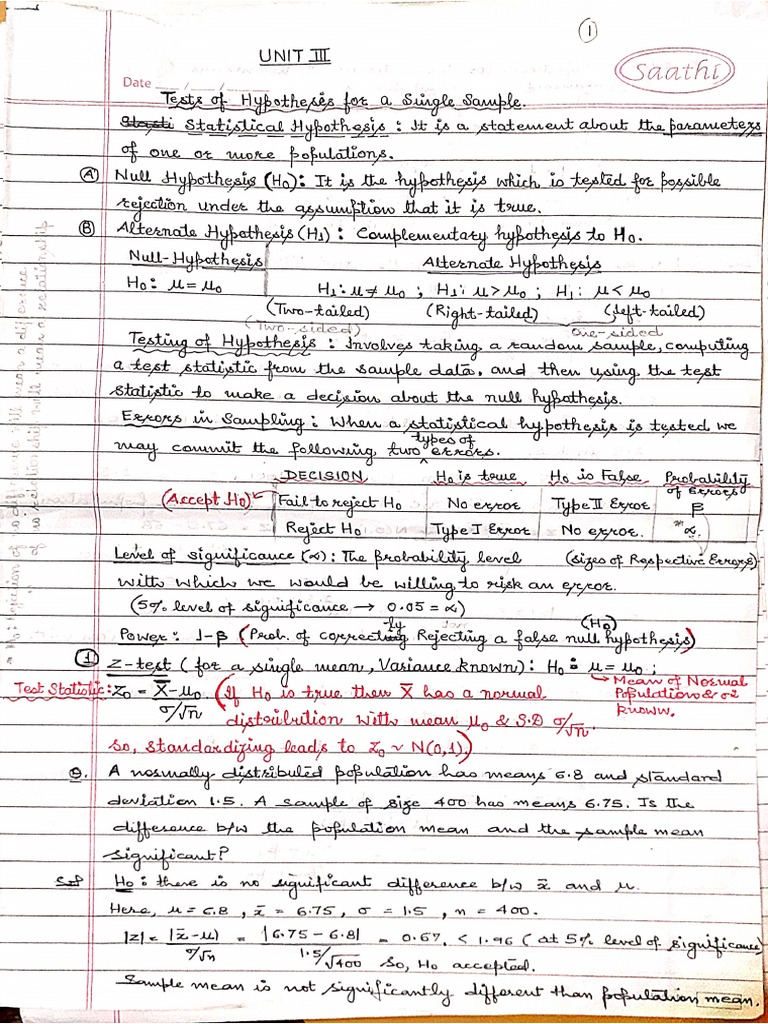 1
UNIT III
Saathi
Date
Tests of Hypothesis for a Single Sample.
Statistical Hypothesis : It is a statement about the parameters
of one or more populations.
A Null Hypothesis (H0): It is the hypothesis which is tested for possible
rejection under the assumption that it is true.
B Alternate Hypothesis (H1) : Complementary hypothesis to H0.
Null-Hypothesis Alternate Hypothesis
H0: μ = μ0 H1: μ ≠ μ0 ; H1: μ > μ0 ; H1: μ < μ0
(Two-tailed) (Right-tailed) (left-tailed)
(Two-sided) One-sided
Testing of Hypothesis : Involves taking a random sample, computing
a test statistic from the sample data, and then using the test
statistic to make a decision about the null hypothesis.
Errors in Sampling : When a statistical hypothesis is tested we
may commit the following two types of errors.
DECISION H0 is true H0 is False Probability of Errors
(Accept H0) Fail to reject H0 No error Type II Error β
Reject H0 Type I Error No error. α
Level of significance (α) : The probability level (sizes of Respective Errors)
with which we would be willing to risk an error.
(5% level of significance → 0.05 = α)
Power : 1-β (Prob. of correctly Rejecting a false null hypothesis) (H0)
1 Z-test ( for a single mean, Variance known) : H0 : μ = μ0 ;
Test Statistic : Z0 = X̄-μ0 / σ/√n (If H0 is true then X̄ has a normal → Mean of Normal Population & σ2 known.
distribution with mean μ0 & S.D σ/√n.
So, standardizing leads to Z0 ~ N(0,1))
Q. A normally distributed population has means 6.8 and standard
deviation 1.5. A sample of size 400 has means 6.75. Is the
difference b/w the population mean and the sample mean
significant?
Sol H0 : there is no significant difference b/w x̄ and μ.
Here, μ = 6.8 , x̄ = 6.75, σ = 1.5 , n = 400.
|z| = |x̄-μ| / σ/√n = |6.75-6.8| / 1.5/√400 = 0.67. < 1.96 ( at 5% level of significance)
So, H0 accepted.
Sample mean is not significantly different than population mean.